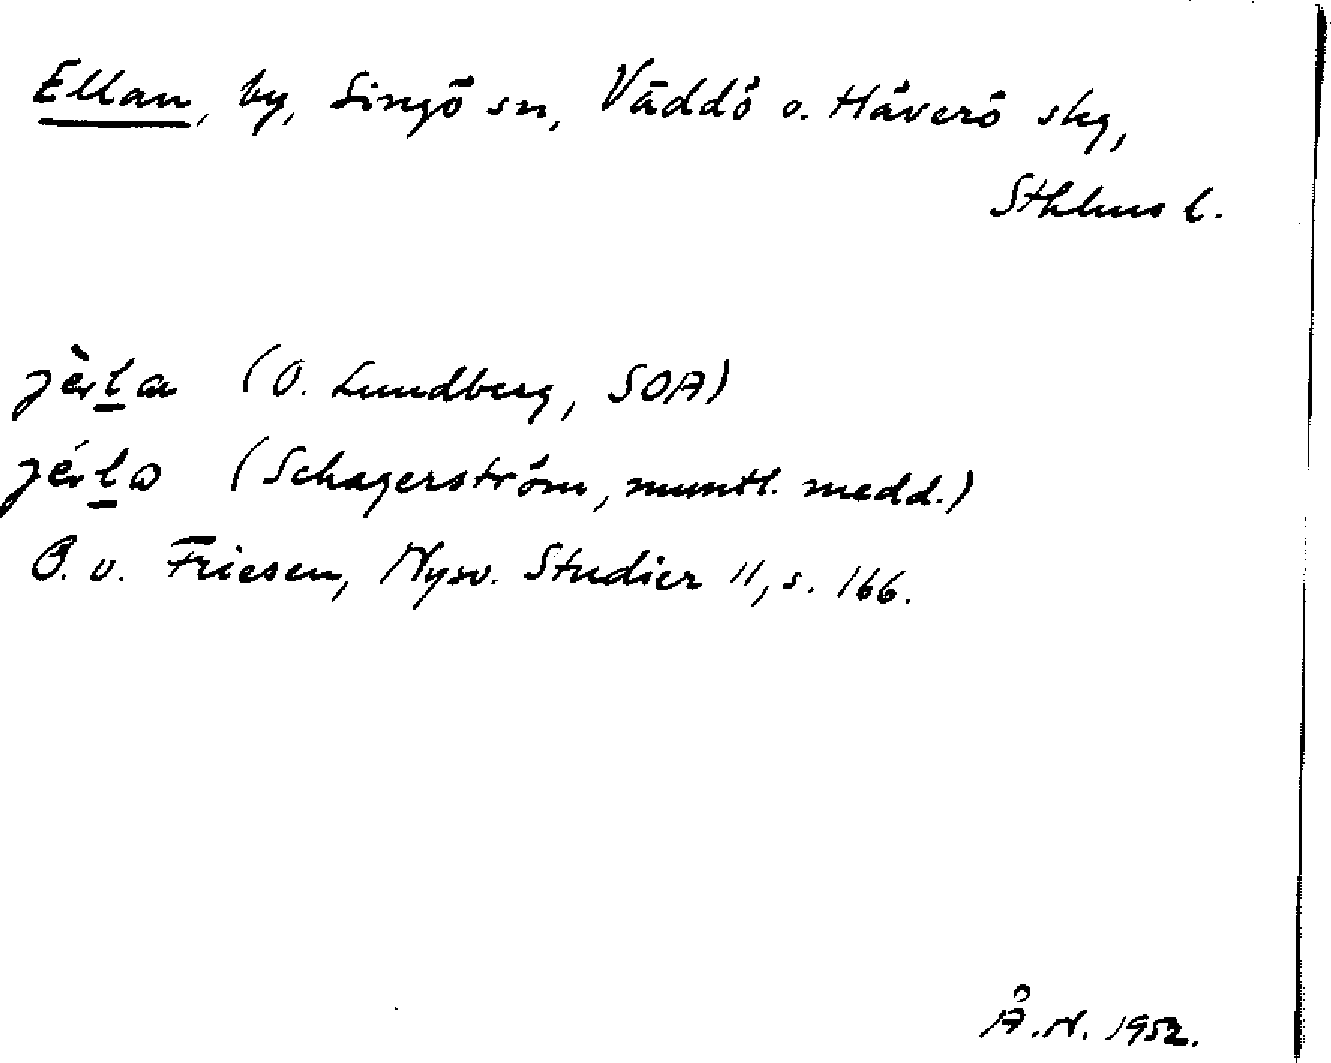 Ellan, by, Singö sn, Väddö o. Häverö skg,
Sthlms l.
jèḻa (O. Lundberg, SOA)
jéḻa (Schagerström, muntl. medd.)
O. v. Friesen, Nysv. Studier 11, s. 166.
Å. N. 1952.